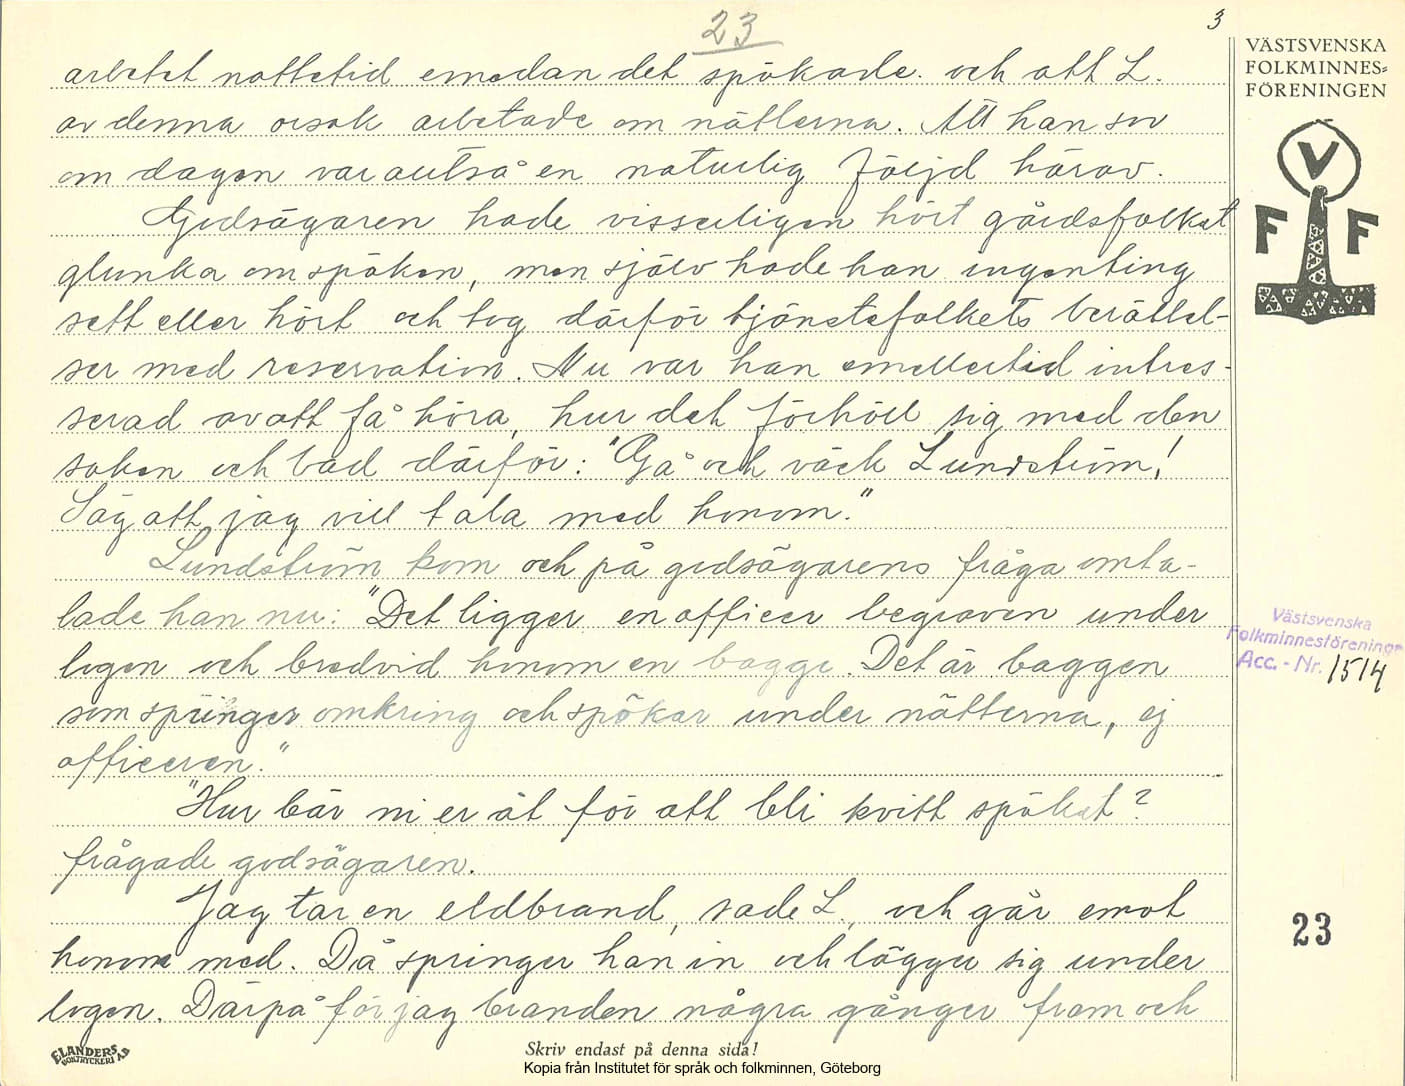 23
3
arbetet nattetid emedan det spökade. och att L.
av denna orsak arbetade om nätterna. Att han sov
om dagen var alltså en naturlig följd härav.
Godsägaren hade visserligen hört gårdsfolket
glunka om spöken, men själv hade han ingenting
sett eller hört och tog därför tjänstefolkets berättel-
ser med reservation. Nu var han emellertid intres-
serad av att få höra, hur det förhöll sig med den
saken och bad därför: "Gå och väck Lundström!
Säg att jag vill tala med honom."
Lundström kom och på godsägarens fråga omta-
lade han nu: "Det ligger en officer begraven under
logen och bredvid honom en bagge. Det är baggen
som springer omkring och spökar under nätterna, ej
officeren."
"Hur bär ni er åt för att bli kvitt spöket?
frågade godsägaren.
Jag tar en eldbrand, sade L., och går emot
honom med. Då springer han in och lägger sig under
logen. Därpå för jag branden några gånger fram och
VÄSTSVENSKA
FOLKMINNES-
FÖRENINGEN
V
F F
Västsvenska
Folkminnesföreningen
Acc. - Nr. 1514
23
ELANDERS
BOKTRYCKERI AB
Skriv endast på denna sida!
Kopia från Institutet för språk och folkminnen, Göteborg